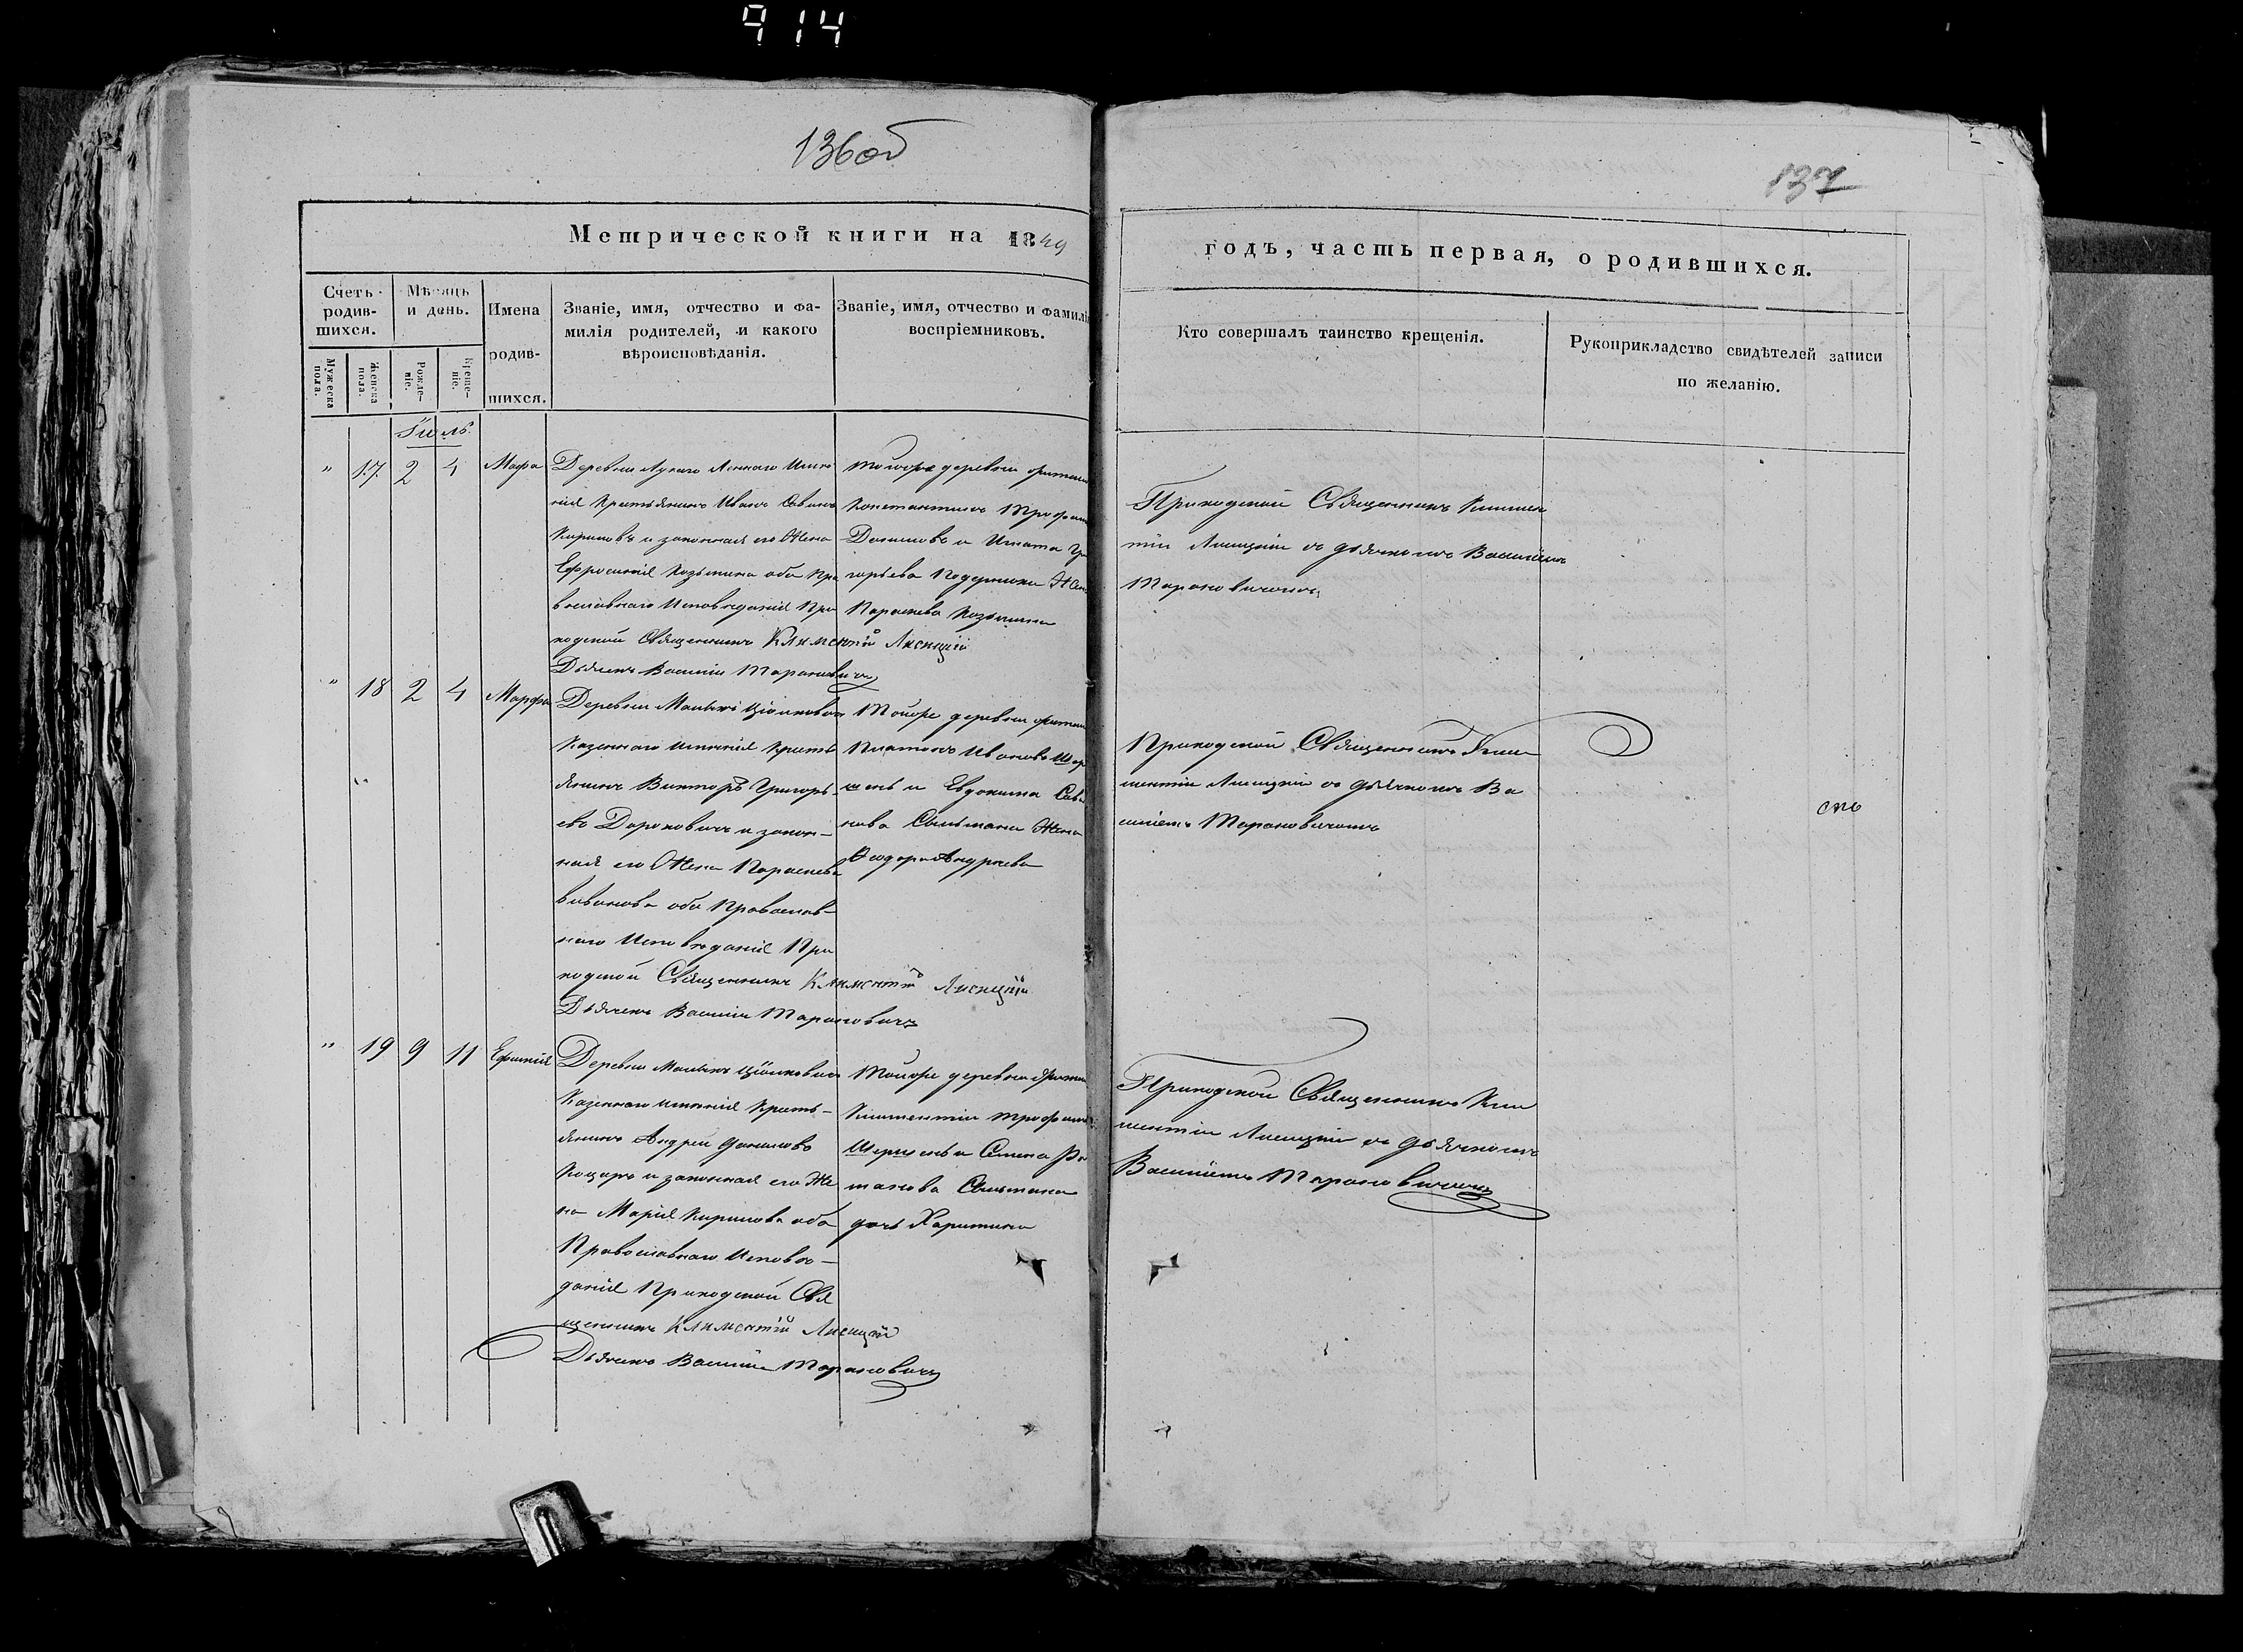 914
136об
137
Метрической книги на 1849
годъ, часть первая, о родившихся.
Счетъ родив-
шихся.
Мужеска пола.
Женска пола.
Мѣсяцъ
и день.
Рожде-
ніе.
Креще-
ніе.
Имена
родив-
шихся.
Званіе, имя, отчество и фа-
милія родителей, и какого
вѣроисповѣданія.
Званіе, имя, отчество и фамилія
воспріемниковъ.
Кто совершалъ таинство крещенія.
Рукоприкладство свидѣтелей записи
по желанію.
Іюль
" 17 2 4
Деревни
нія Крестьянинъ Иванъ Савинъ
Кириловъ и законная его Жена
Ефросинія Козьмина оба Пра
вославнаго Исповѣданія При
ходской Священникъ Климентій Лисицкій
Дьячекъ Василій Тарановичъ
тойже деревни
Константинъ Трофим
Даниловъ и Игната Гри
горьева Жена
Параскева Козьмина
Приходской Священникъ Климен
тій Лисицкій съ дьячкомъ Василіемъ
Тарановичомъ
" 18 2 4 Марфа
Деревни Малыхъ
Казеннаго имѣнія Кресть
янинъ Викторъ Григорь-
евъ Дорожовичъ и закон-
ная его Жена Параскева
Иванова оба Православ-
наго Исповѣданія При
ходской Священникъ Климентій Лисицкій
Дьячекъ Василій Тарановичъ
Тойже деревни
Платонъ Ивановъ Шер
шень и Евдокима Сав
Жена
Ѳеодора Андреева
Приходской Священникъ Кли
ментій Лисицкій съ дьячкомъ Ва
силіемъ Тарановичомъ
" 19 9 11 Ефимія
Деревни Малыхъ
Казеннаго имѣнія Кресть-
янинъ Андрей Даниловъ
Коцаръ и законная его Же
на Марія Кирилова оба
Православнаго Исповѣ-
данія Приходской Свя
щенникъ Климентій Лисицкій
Дьячекъ Василій Тарановичъ
Тойже деревни
Климентій Трофимовъ
Шершень и Семена Ро
манова
дочь Харитина
Приходской Священникъ Кли
ментій Лисицкій съ дьячкомъ
Василіемъ Тарановичомъ